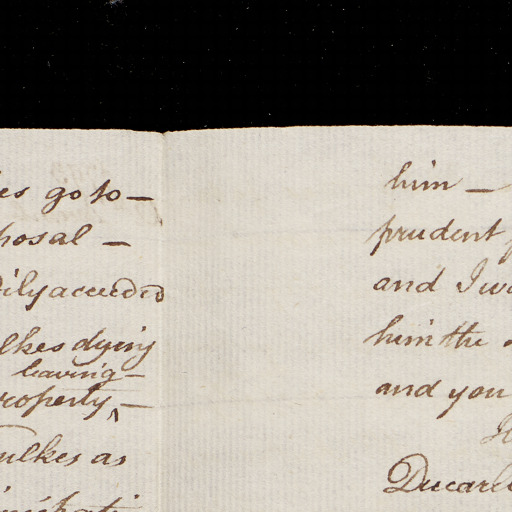 es go to —
posal —
ily acceeded
lkes dying
leaving —
roperty ‸ —
ulkes as
him —
prudent
and I w
him the
and you
Ducarel